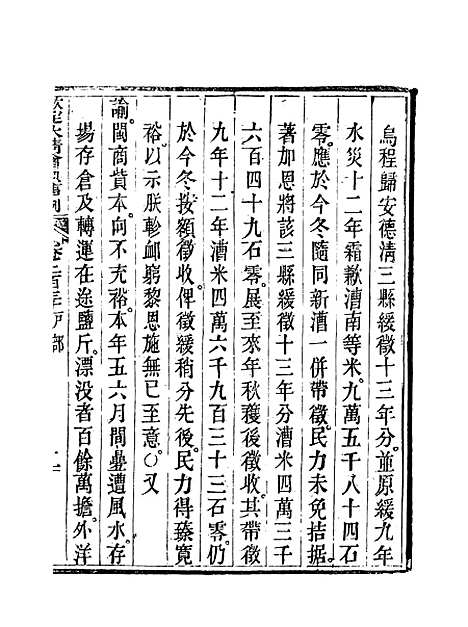 烏程歸安德清三縣緩徵十三年分。並原緩九年
水災十二年霜歉漕南等米。九萬五千八十四石
零。應於今冬隨同新漕一併帶徵。民力未免拮据。
著加恩將該三縣緩徵十三年分漕米四萬三千
六百四十九石零。展至來年秋穫後徵收。其帶徵
九年十二年漕米四萬六千九百三十三石零。仍
於今冬按額徵收。俾徵緩稍分先後。民力得臻寬
裕。以示朕軫卹窮黎恩施無已至意。○又
諭。閩商貲本。向不充裕。本年五六月間。疊遭風水。存
場存倉及轉運在途鹽斤。漂沒者百餘萬擔。外洋
欽定大清會典事例 卷二百三 戶部 十二